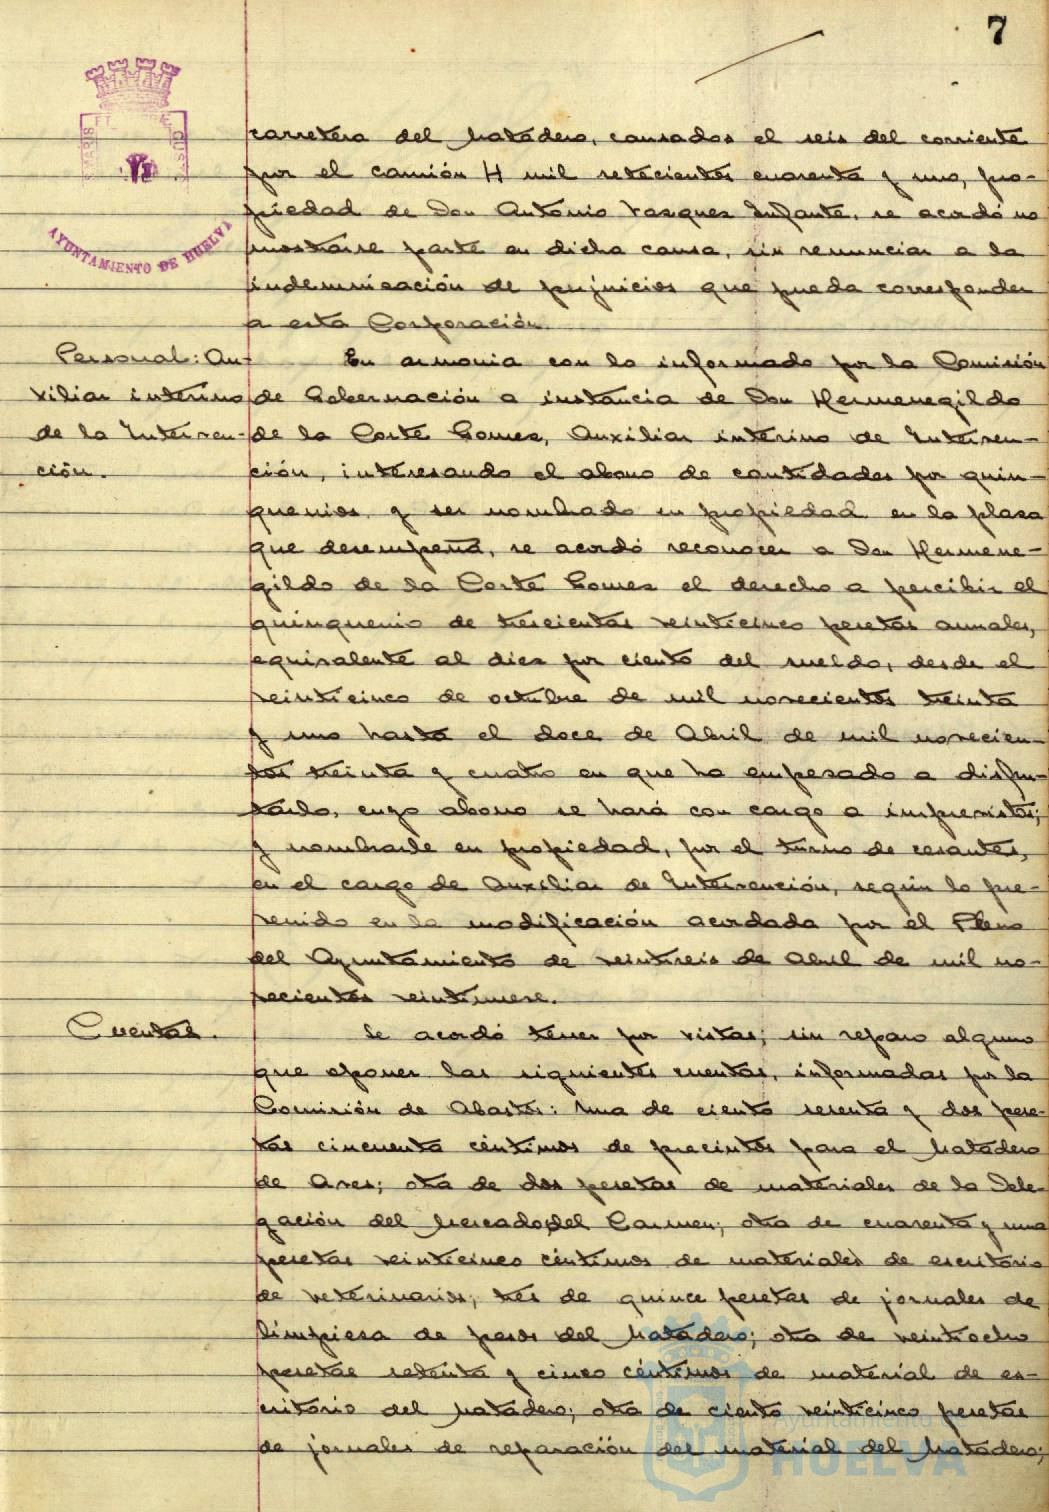 7
AYUNTAMIENTO DE HUELVA
carretera del Matadero, causados el seis del corriente
por el camión H mil setecientos cuarenta y uno, pro-
piedad de Don Antonio Vasques Infante, se acordó no
mostrarse parte en dicha causa, sin renunciar a la
indemnisación de perjuicios que pueda corresponder
a esta Corporación.
Personal: Au-
xiliar interino
de la Interven-
ción.
En armonia con lo informado por la Comisión
de Gobernación a instancia de Don Hermenegildo
de la Corte Gomes, Auxiliar interino de Interven-
ción, interesando el abono de cantidades por quin-
quenios y ser nombrado en propiedad en la plasa
que desempeña, se acordó reconocer a Don Hermene-
gildo de la Corte Gomes el derecho a percibir el
quinquenio de trescientas veinticinco pesetas anuales,
equivalente al dies por ciento del sueldo, desde el
veinticinco de octubre de mil novecientos treinta
y uno hasta el doce de Abril de mil novecien-
tos treinta y cuatro en que ha empesado a disfru-
tarlo, cuyo abono se hará con cargo a imprevistos;
y nombrarle en propiedad, por el turno de cesantes,
en el cargo de Auxiliar de Intervención, según lo pre-
venido en la modificación acordada por el Pleno
del Ayuntamiento de veintiseis de Abril de mil no-
vecientos veintinueve.
Cuentas.
Se acordó tener por vistas; sin reparo alguno
que oponer las siguientes cuentas, informadas por la
Comisión de Abastos: Una de ciento sesenta y dos pese-
tas cincuenta céntimos de precintos para el Matadero
de Aves; otra de dos pesetas de materiales de la Dele-
gación del Mercado del Carmen; otra de cuarenta y una
pesetas veinticinco céntimos de materiales de escritorio
de veterinarios; tres de quince pesetas de jornales de
limpiesa de pesos del Matadero; otra de veintiocho
pesetas setenta y cinco céntimos de material de es-
critorio del Matadero; otra de ciento veinticinco pesetas
de jornales de reparación del material del Matadero;
Ayuntamiento
HUELVA